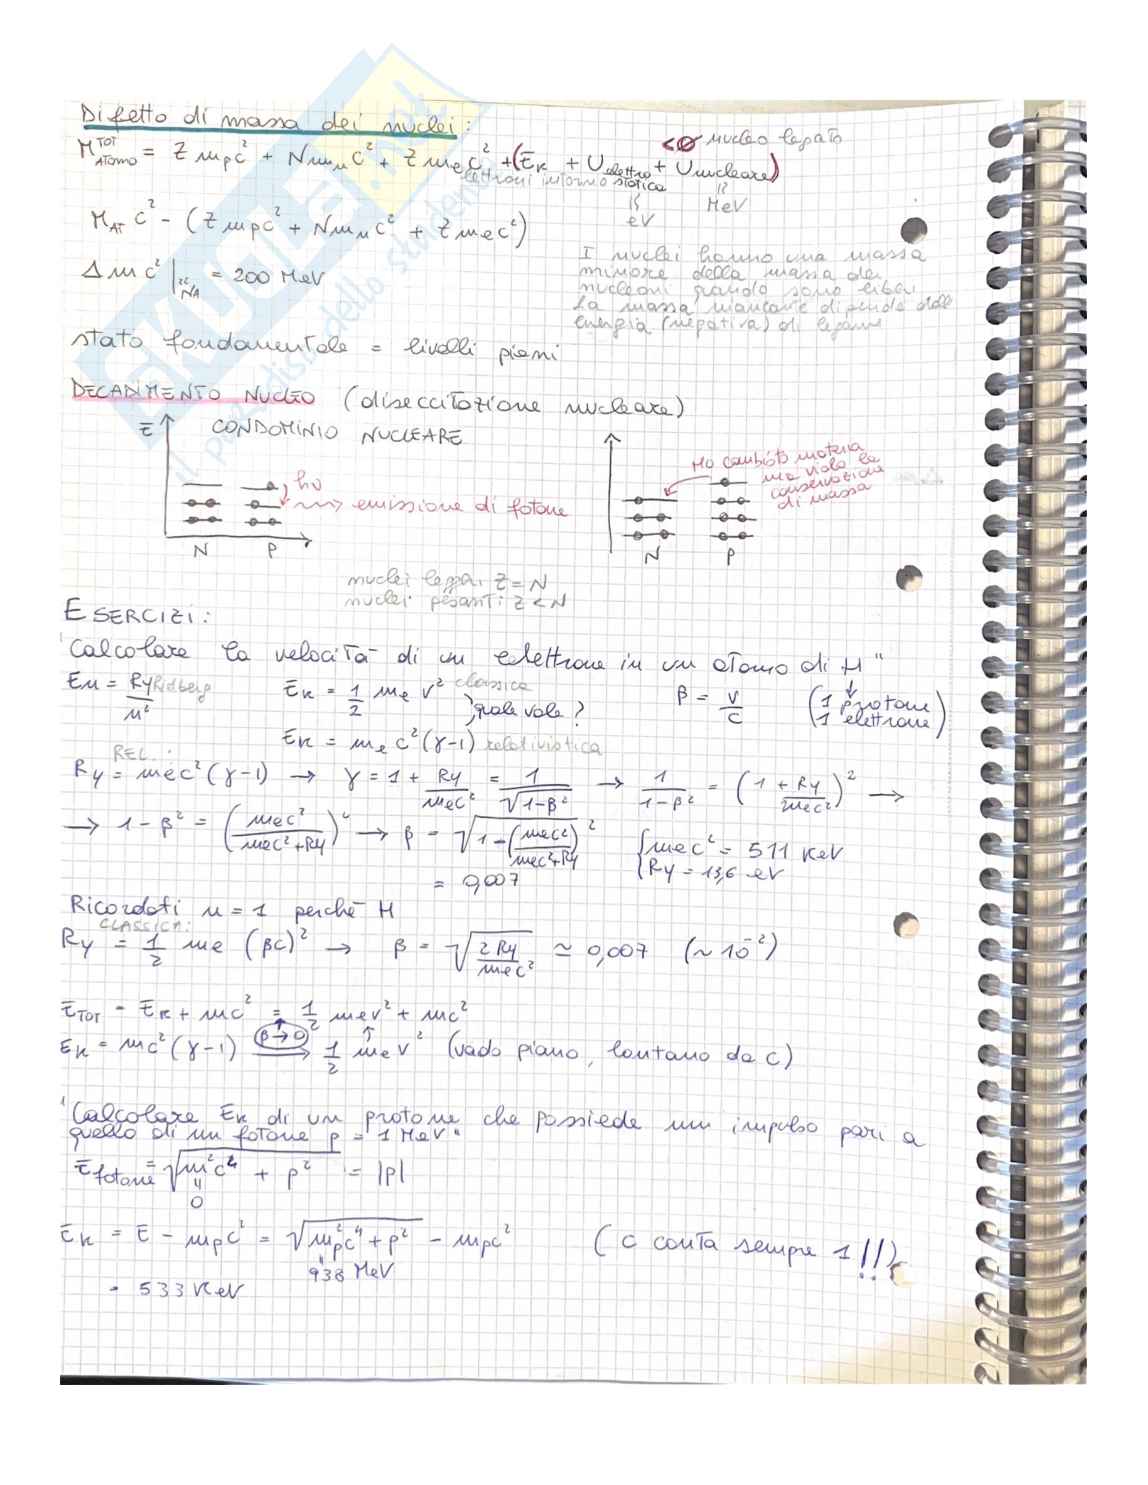 Difetto di massa dei nuclei:
<0 nucleo legato
M^TOT_Atomo = Z mpc² + Nmnc² + Z mec² + (Ek + Uelettro + Unucleare)
elettroni intorno statica
eV MeV
M_AT c² - (Z mpc² + Nmnc² + Z mec²)
Δmc² |²²NA = 200 MeV
I nuclei hanno una massa
minore della massa dei
nucleoni quando sono liberi
La massa mancante dipende dall'
energia (negativa) di legame
stato fondamentale = livelli pieni
DECADIMENTO NUCLEO (diseccitazione nucleare)
E CONDOMINIO NUCLEARE
Ho cambiato materia
ma violo la
conservazione
di massa
hν
→ emissione di fotone
N P
N P
nuclei leggeri Z = N
nuclei pesanti: Z < N
ESERCIZI:
"Calcolare la velocità di un elettrone in un atomo di H"
En = Ry/n² Ridberg Ek = 1/2 me v² classica
quale vale?
β = v/c (1 protone
1 elettrone)
Ek = me c² (γ-1) relativistica
REL.:
Ry = mec² (γ-1) → γ = 1 + Ry/mec² = 1/√1-β² → 1/1-β² = (1 + Ry/mec²)² →
→ 1-β² = (mec²/mec²+Ry)² → β = √1-(mec²/mec²+Ry)² {mec² = 511 KeV
Ry = 13,6 eV
= 0,007
Ricordati n = 1 perché H
CLASSICA:
Ry = 1/2 me (βc)² → β = √2Ry/mec² ≃ 0,007 (~10⁻²)
E_TOT = Ek + mc² = 1/2 mev² + mc²
Ek = mc² (γ-1) β→0 → 1/2 mev² (vado piano, lontano da c)
"Calcolare Ek di un protone che possiede un impulso pari a
quello di un fotone p = 1 MeV"
Efotone = √m²c⁴ + p² = |p|
0
Ek = E - mpc² = √mp²c⁴ + p² - mpc² (c conta sempre 1!!)
938 MeV
= 533 KeV